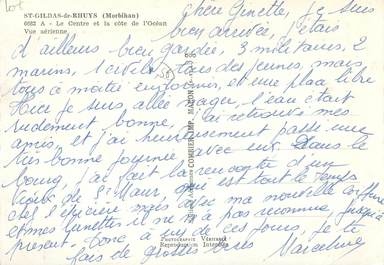 lot
ST-GILDAS-de-RHUYS (Morbihan)
6682 A - Le Centre et la côte de l'Océan
Vue aérienne
Chère Ginette, je suis
bien arrivée, j'étais
d'ailleurs bien gardée, 3 militaires, 2
marins, 1 civil, tous des jeunes, mais
tous à moitié endormis, et une place libre
Hier je suis allée nager, l'eau était
rudement bonne, j'ai retrouvé mes
amis, et j'ai heureusement passé une
très bonne journée avec eux. Dans le
bourg, j'ai fait la rencontre d'un
vieux de St Maur, qui est tout le temps
chez l'épicière mais avec ma nouvelle coiffure
et mes lunettes il ne m'a pas reconnue, jusqu'à
présent. Donc à un de ces jours, je te
fais de grosses bises
Marceline
COMBIER IMP. MACON
PHOTOGRAPHIE VÉRITABLE
Reproduction Interdite